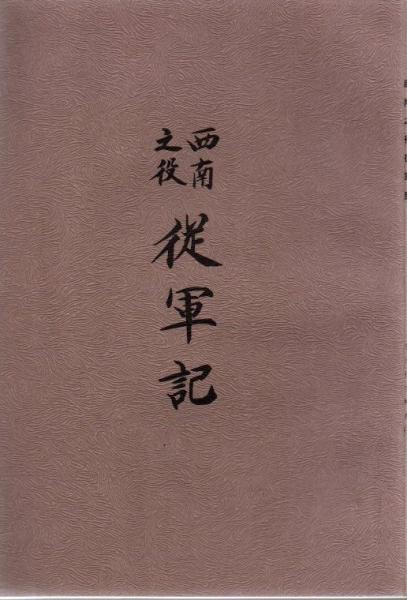 西南
之役
從軍記